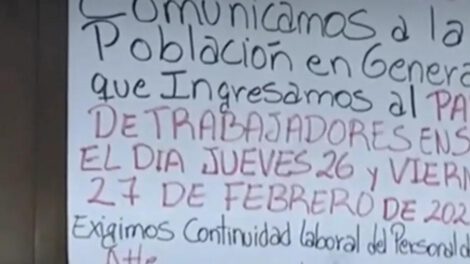 Comunicamos a la
Población en Genera
que Ingresamos al PA
DE TRABAJADORES EN S
EL DIA JUEVES 26 y VIERN
27 DE FEBRERO DE 202
Exigimos Continuidad laboral del Personal d
Atte